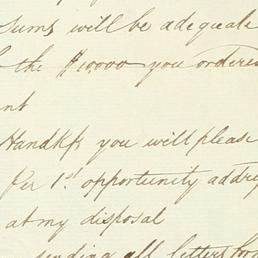 sums will be adequate
the $10000 you ordered
nt
Handkfs you will please
Per 1st opportunity addre
at my disposal
sending all letters for